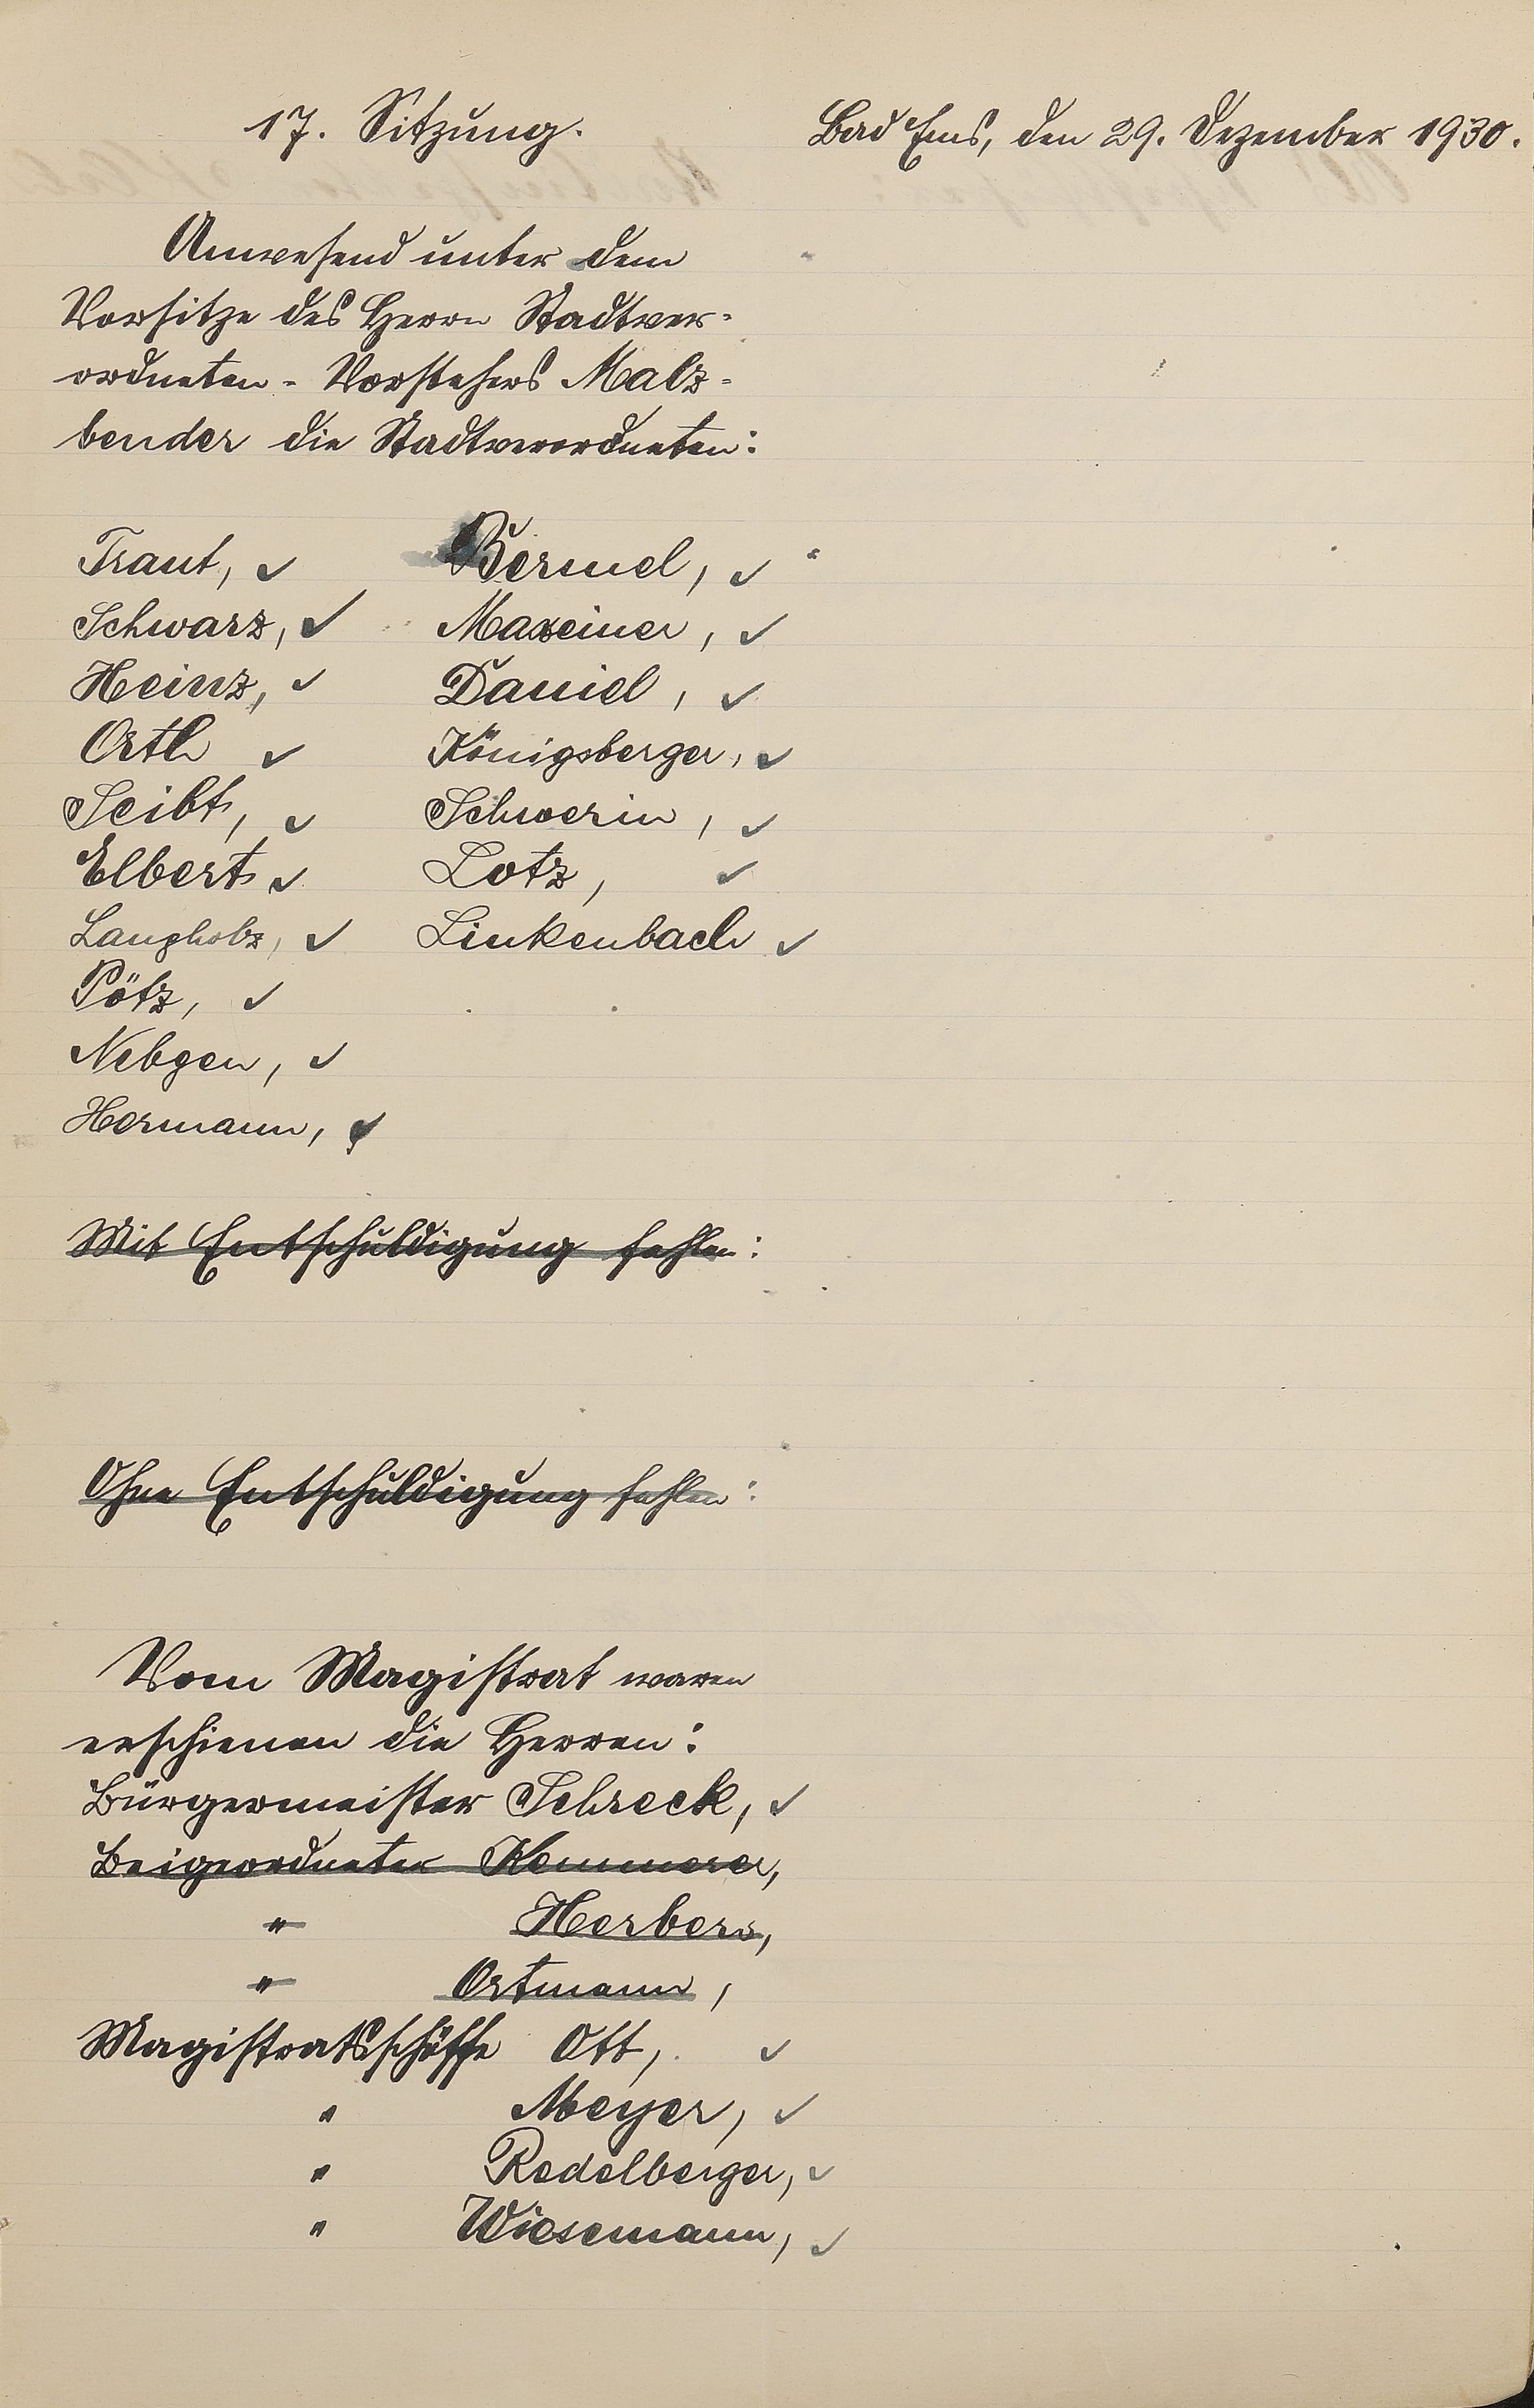 17. Sitzung.
Bad Ems, den 29. Dezember 1930.
Anwesend unter dem
Vorsitze des Herrn Stadtver-
ordneten-Vorstehers Malz-
bender die Stadtverordneten:
Traut, ✓
Schwarz, ✓
Heinz, ✓
Orth ✓
Seibt, ✓
Elbert ✓
Langholz, ✓
Pötz, ✓
Nebgen, ✓
Hermann, ✓
Bermel, ✓
Maxeiner, ✓
Daniel, ✓
Königsberger, ✓
Schwerin, ✓
Lotz, ✓
Linkenbach ✓
Mit Entschuldigung fehlen:
Ohne Entschuldigung fehlen:
Vom Magistrat waren
erschienen die Herren:
Bürgermeister Schreck, ✓
Beigeordneter Kemmerer,
" Herbers,
" Ortmann,
Magistratsschöffe Ott, ✓
" Meyer, ✓
" Redelberger, ✓
" Wiesemann, ✓